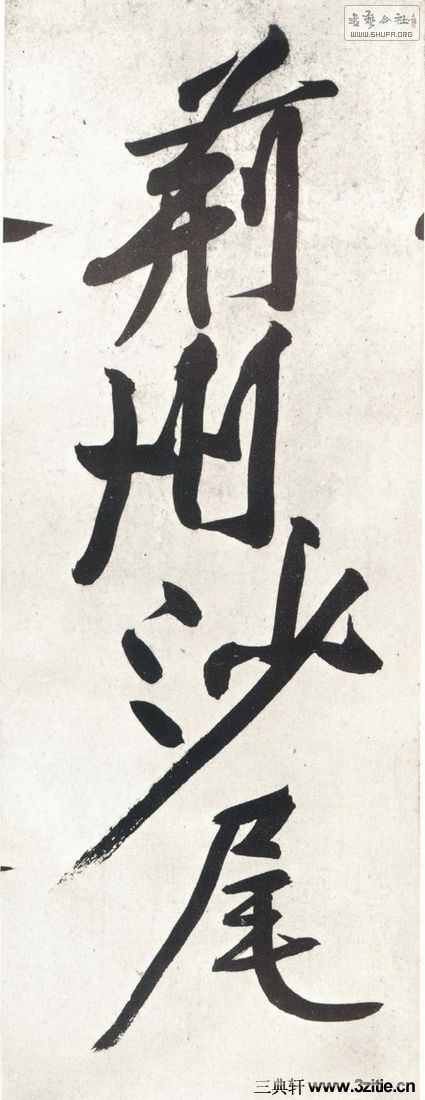 書藝公社
WWW.SHUFA.ORG
荊州沙尾
三典轩 www.3zitie.cn